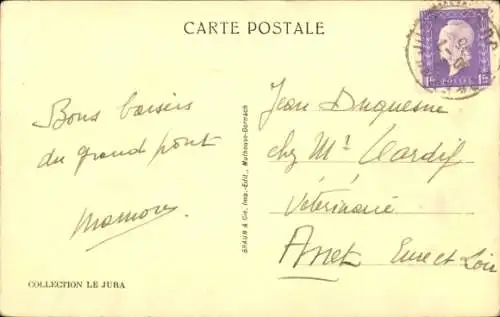 CARTE POSTALE
Bons baisers
du grand pont
COLLECTION LE JURA
BRAUN & Cie, Imp.-Edit., Mulhouse-Dornach
Jean Duquesne
chez Mr
Vétérinaire
Anet Eure et Loir